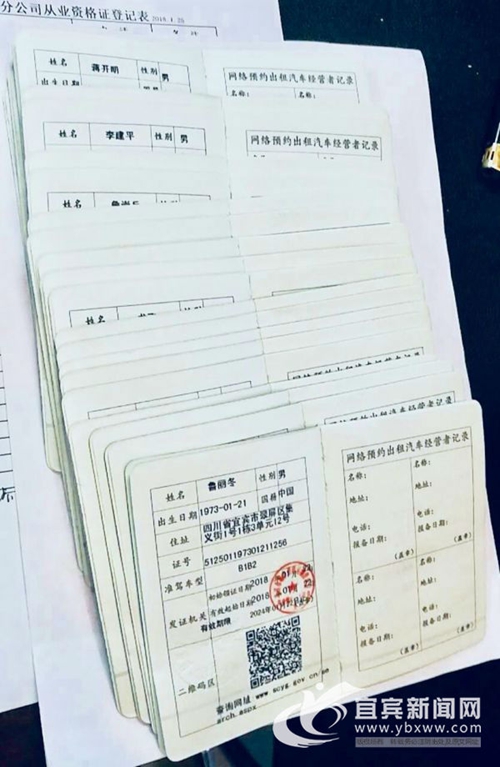 分公司从业资格证登记表 2018.1.29
姓名 蒋开明 性别 男
出生日期
网络预约出租汽车经营者记录
名称: 名称:
姓名 李建平 性别 男
网络预约出租汽车经营者记录
姓名 性别
姓名
网络预约出租汽车经营者记录
姓名 鲁丽冬 性别 男
出生日期 1973-01-21 国籍 中国
住址 四川省宜宾市翠屏区集
义街1号1栋3单元12号
证号 512501197301211256
准驾车型 B1B2
初始领证日期 2018
发证机关 有效起始日期 2018
有效期限 2024
二维码区
查询网址 www.scyg.gov.cn/se
arch.aspx
网络预约出租汽车经营者记录
名称: 名称:
地址: 地址:
电话: 电话:
报备日期: 报备日期:
(盖章) (盖章)
名称: 名称:
地址: 地址:
电话: 电话:
报备日期: 报备日期:
(盖章) (盖章)
宜宾新闻网
www.ybxww.com